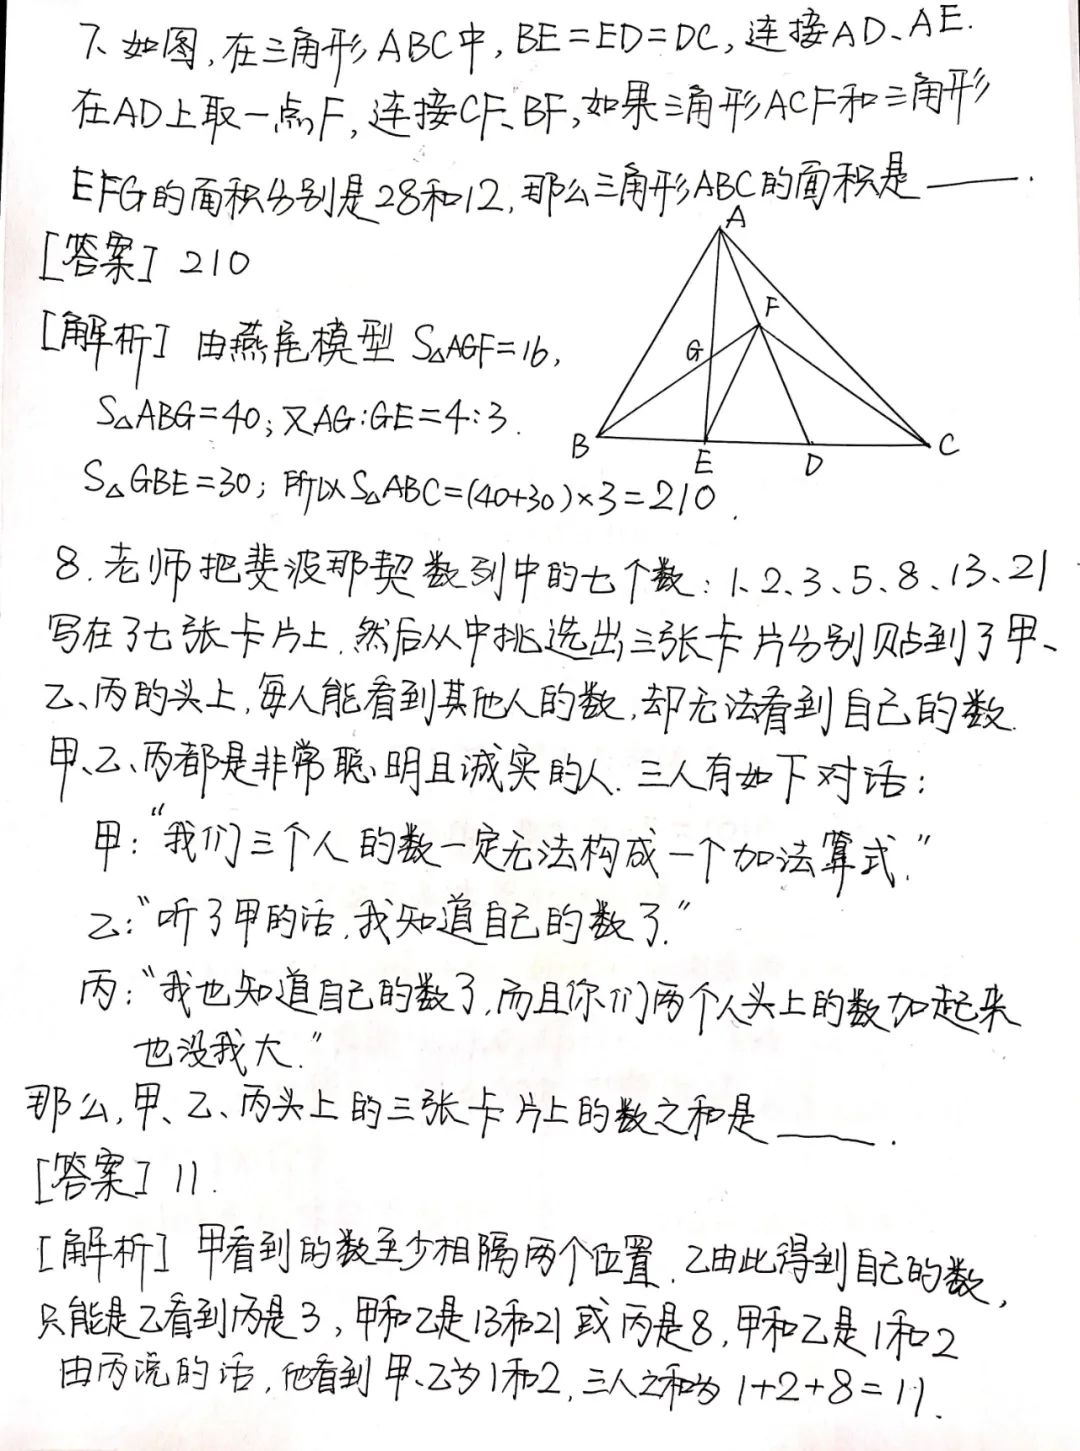 7、如图,在三角形ABC中,BE=ED=DC,连接AD、AE.
在AD上取一点F,连接CF、BF,如果三角形ACF和三角形
EFG的面积分别是28和12,那么三角形ABC的面积是______.
[答案] 210
[解析] 由燕尾模型 S△AGF=16,
S△ABG=40;又AG:GE=4:3.
S△GBE=30;所以S△ABC=(40+30)×3=210.
A
F
G
B
E
D
C
8.老师把斐波那契数列中的七个数:1、2、3、5、8、13、21
写在了七张卡片上.然后从中挑选出三张卡片分别贴到了甲、
乙、丙的头上,每人能看到其他人的数,却无法看到自己的数.
甲、乙、丙都是非常聪明且诚实的人.三人有如下对话:
甲:“我们三个人的数一定无法构成一个加法算式.”
乙:“听了甲的话,我知道自己的数了.”
丙:“我也知道自己的数了,而且你们两个人头上的数加起来
也没我大.”
那么,甲、乙、丙头上的三张卡片上的数之和是______.
[答案] 11.
[解析] 甲看到的数至少相隔两个位置.乙由此得到自己的数,
只能是乙看到丙是3,甲和乙是13和21或丙是8,甲和乙是1和2
由丙说的话,他看到甲、乙为1和2,三人之和为1+2+8=11.